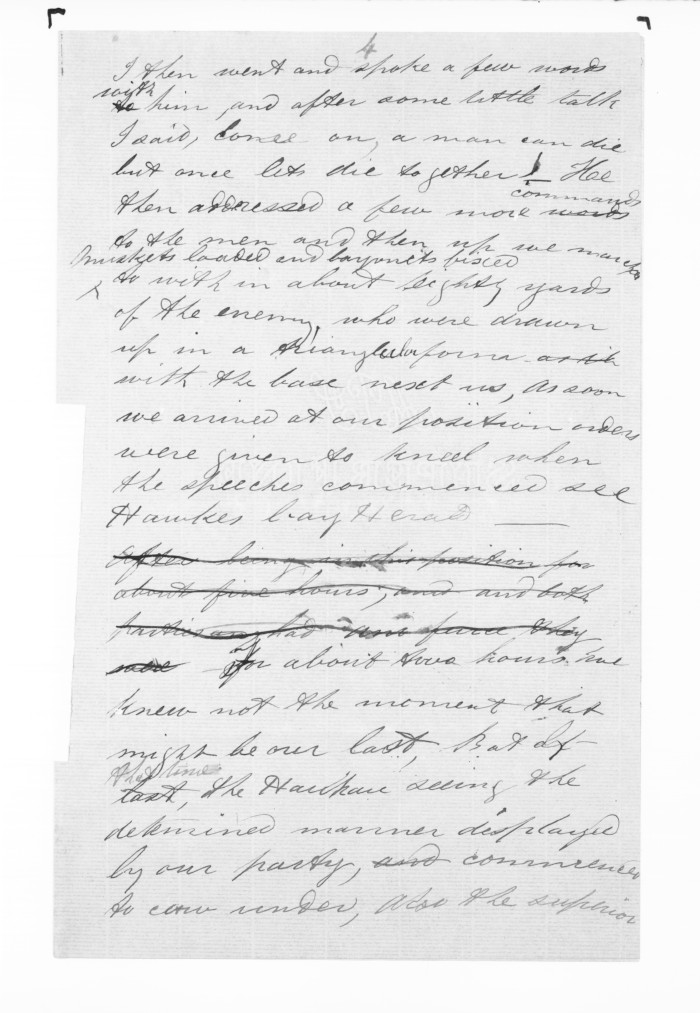 4
I then went and spoke a few words
with
to him, and after some little talk
I said, Come on, a man can die
but once lets die together! He
commands
then addressed a few more words
to the men and then up we march
muskets loaded and bayonets fixed
to with in about Eighty yards
of the enemy, who were drawn
up in a triangular form
with the base next us, As soon
we arrived at our position orders
were given to kneel when
the speeches commenced see
Hawkes bay Herad —
After being in this position for
about five hours, and and both
parties had they
were For about two hours we
knew not the moment that
might be our last, But
that time
last, the Hauhau seeing the
detemined manner displayed
by our party, and commenced
to cow under, Also the superior